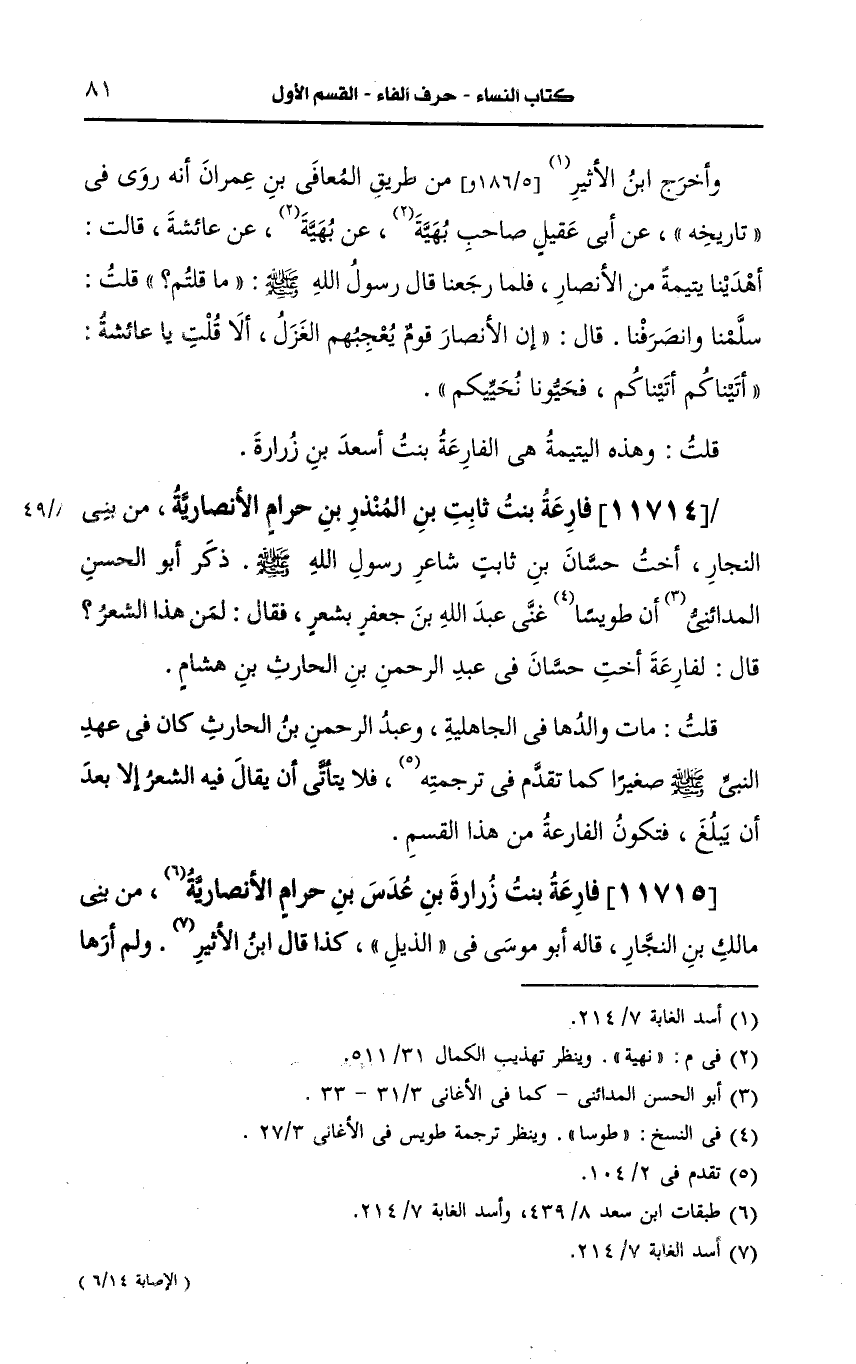 كتاب النساء - حرف الفاء - القسم الأول ٨١
وأخرَج ابنُ الأثيرِ(١) [١٨٦/٥و] من طريقِ المُعافَى بنِ عِمرانَ أنه روَى فى
« تاريخِه » ، عن أبى عَقيلٍ صاحبِ بُهَيَّةَ(٢) ، عن بُهَيَّةَ(٢) ، عن عائشةَ ، قالت :
أهْدَيْنا يتيمةً من الأنصارِ ، فلما رجَعنا قال رسولُ اللهِ ﷺ : « ما قلتُم؟ » قلتُ :
سلَّمْنا وانصَرَفْنا . قال : « إن الأنصارَ قومٌ يُعْجِبُهم الغَزَلُ ، ألَا قُلْتِ يا عائشةُ :
« أتَيْناكُم أتَيْناكُم ، فحَيُّونا نُحَيِّيكم » .
قلتُ : وهذه اليتيمةُ هى الفارِعَةُ بنتُ أسعدَ بنِ زُرارةَ .
/[١١٧١٤] فارِعَةُ بنتُ ثابتِ بنِ المُنْذرِ بنِ حرامٍ الأنصاريَّةُ ، من بنِى ٤٩/٨
النجارِ ، أختُ حسَّانَ بنِ ثابتٍ شاعرِ رسولِ اللهِ ﷺ . ذكَر أبو الحسنِ
المدائنىُّ(٣) أن طويسًا(٤) غنَّى عبدَ اللهِ بنَ جعفرٍ بشعرٍ ، فقال : لمَن هذا الشعرُ ؟
قال : لفارِعَةَ أختِ حسَّانَ فى عبدِ الرحمنِ بنِ الحارثِ بنِ هشامٍ .
قلتُ : مات والدُها فى الجاهليةِ ، وعبدُ الرحمنِ بنُ الحارثِ كان فى عهدِ
النبىِّ ﷺ صغيرًا كما تقدَّم فى ترجمتِه(٥) ، فلا يتأتَّى أن يقالَ فيه الشعرُ إلا بعدَ
أن يَبلُغَ ، فتكونُ الفارعةُ من هذا القسمِ .
[١١٧١٥] فارِعَةُ بنتُ زُرارةَ بنِ عُدَسَ بنِ حرامٍ الأنصاريَّةُ(٦) ، من بنى
مالكِ بنِ النجَّارِ ، قاله أبو موسَى فى « الذيلِ » ، كذا قال ابنُ الأثيرِ(٧) . ولم أرَها
(١) أسد الغابة ٧/ ٢١٤.
(٢) فى م : « نهية » . وينظر تهذيب الكمال ٣١/ ٥١١.
(٣) أبو الحسن المدائنى - كما فى الأغانى ٣١/٣ - ٣٣ .
(٤) فى النسخ : « طوسا» . وينظر ترجمة طويس فى الأغانى ٢٧/٣ .
(٥) تقدم فى ٢/ ١٠٤.
(٦) طبقات ابن سعد ٨/ ٤٣٩، وأسد الغابة ٧/ ٢١٤.
(٧) أسد الغابة ٧/ ٢١٤.
( الإصابة ٦/١٤ )